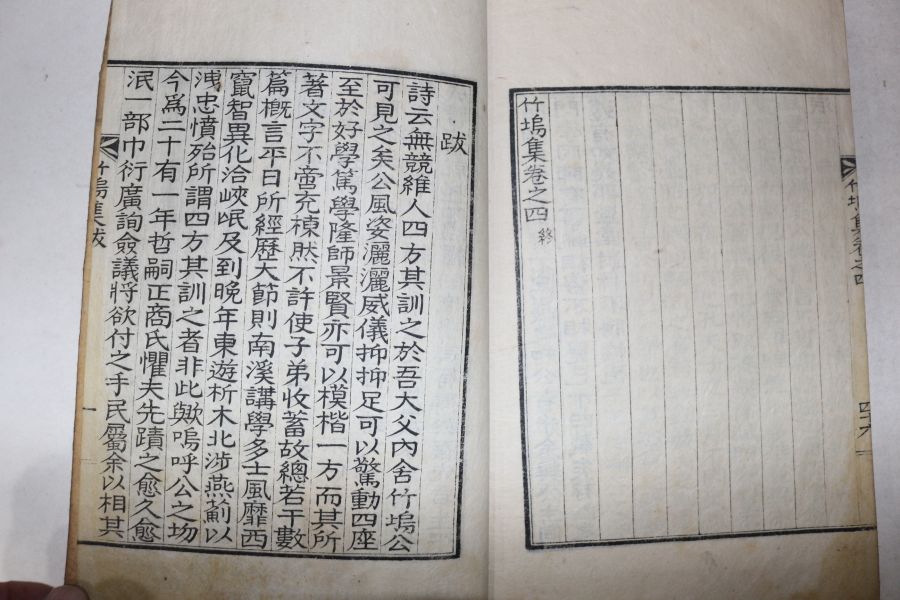 竹塢集卷之四
四十六
竹塢集卷之四 終
跋
詩云無競維人四方其訓之於吾大父內舍竹塢公
可見之矣公風姿灑灑威儀抑抑足可以驚動四座
至於好學篤學隆師景賢亦可以模楷一方而其所
著文字不啻充棟然不許使子弟收蓄故總若干數
篇槪言平日所經歷大節則南溪講學多士風靡西
竄智異化洽峽氓及到晩年東遊析木北涉燕薊以
洩忠憤殆所謂四方其訓之者非此歟嗚呼公之歿
今爲二十有一年哲嗣正商氏懼夫先蹟之愈久愈
泯一部巾衍廣詢僉議將欲付之手民屬余以相其
竹塢集跋
一